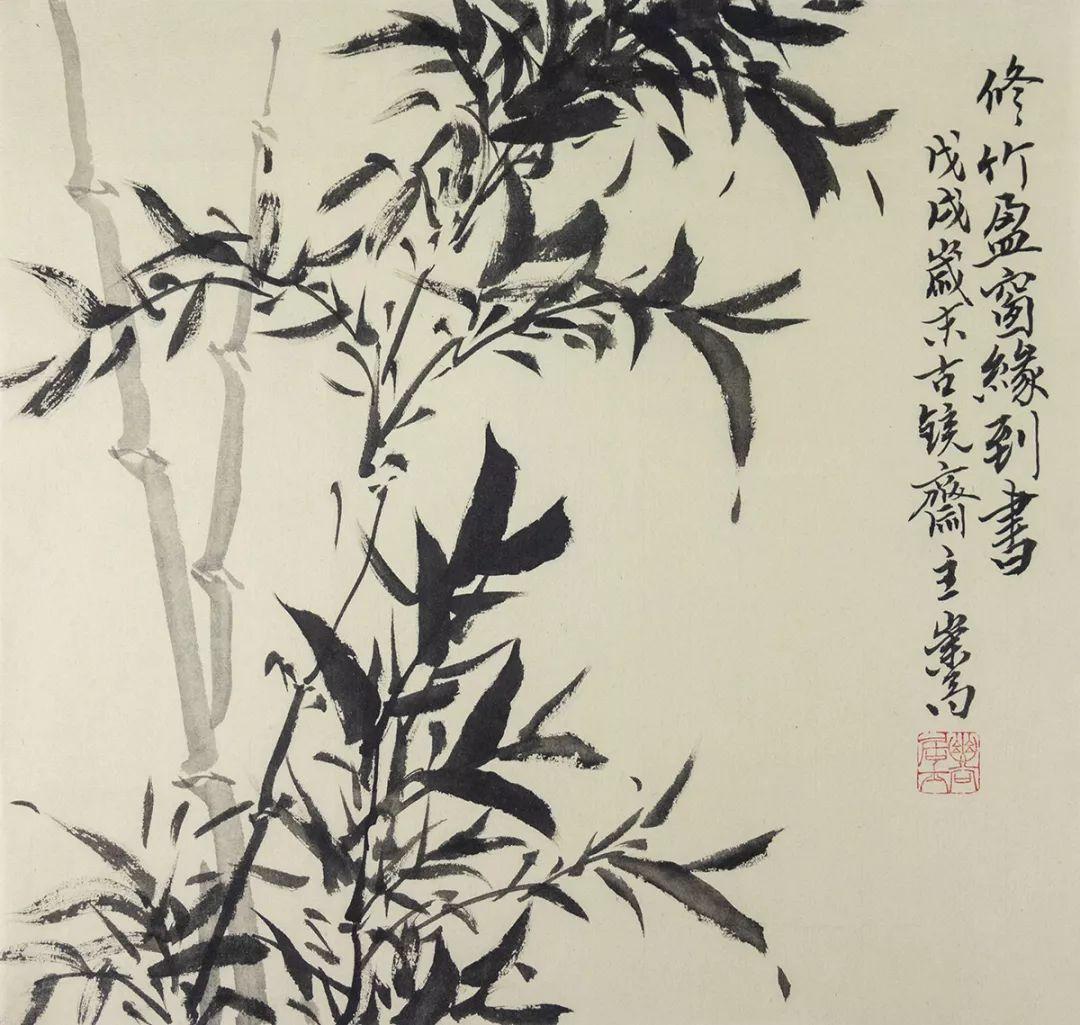 修竹盈窗緣到書
戊戌歲末古镜齋主崇高